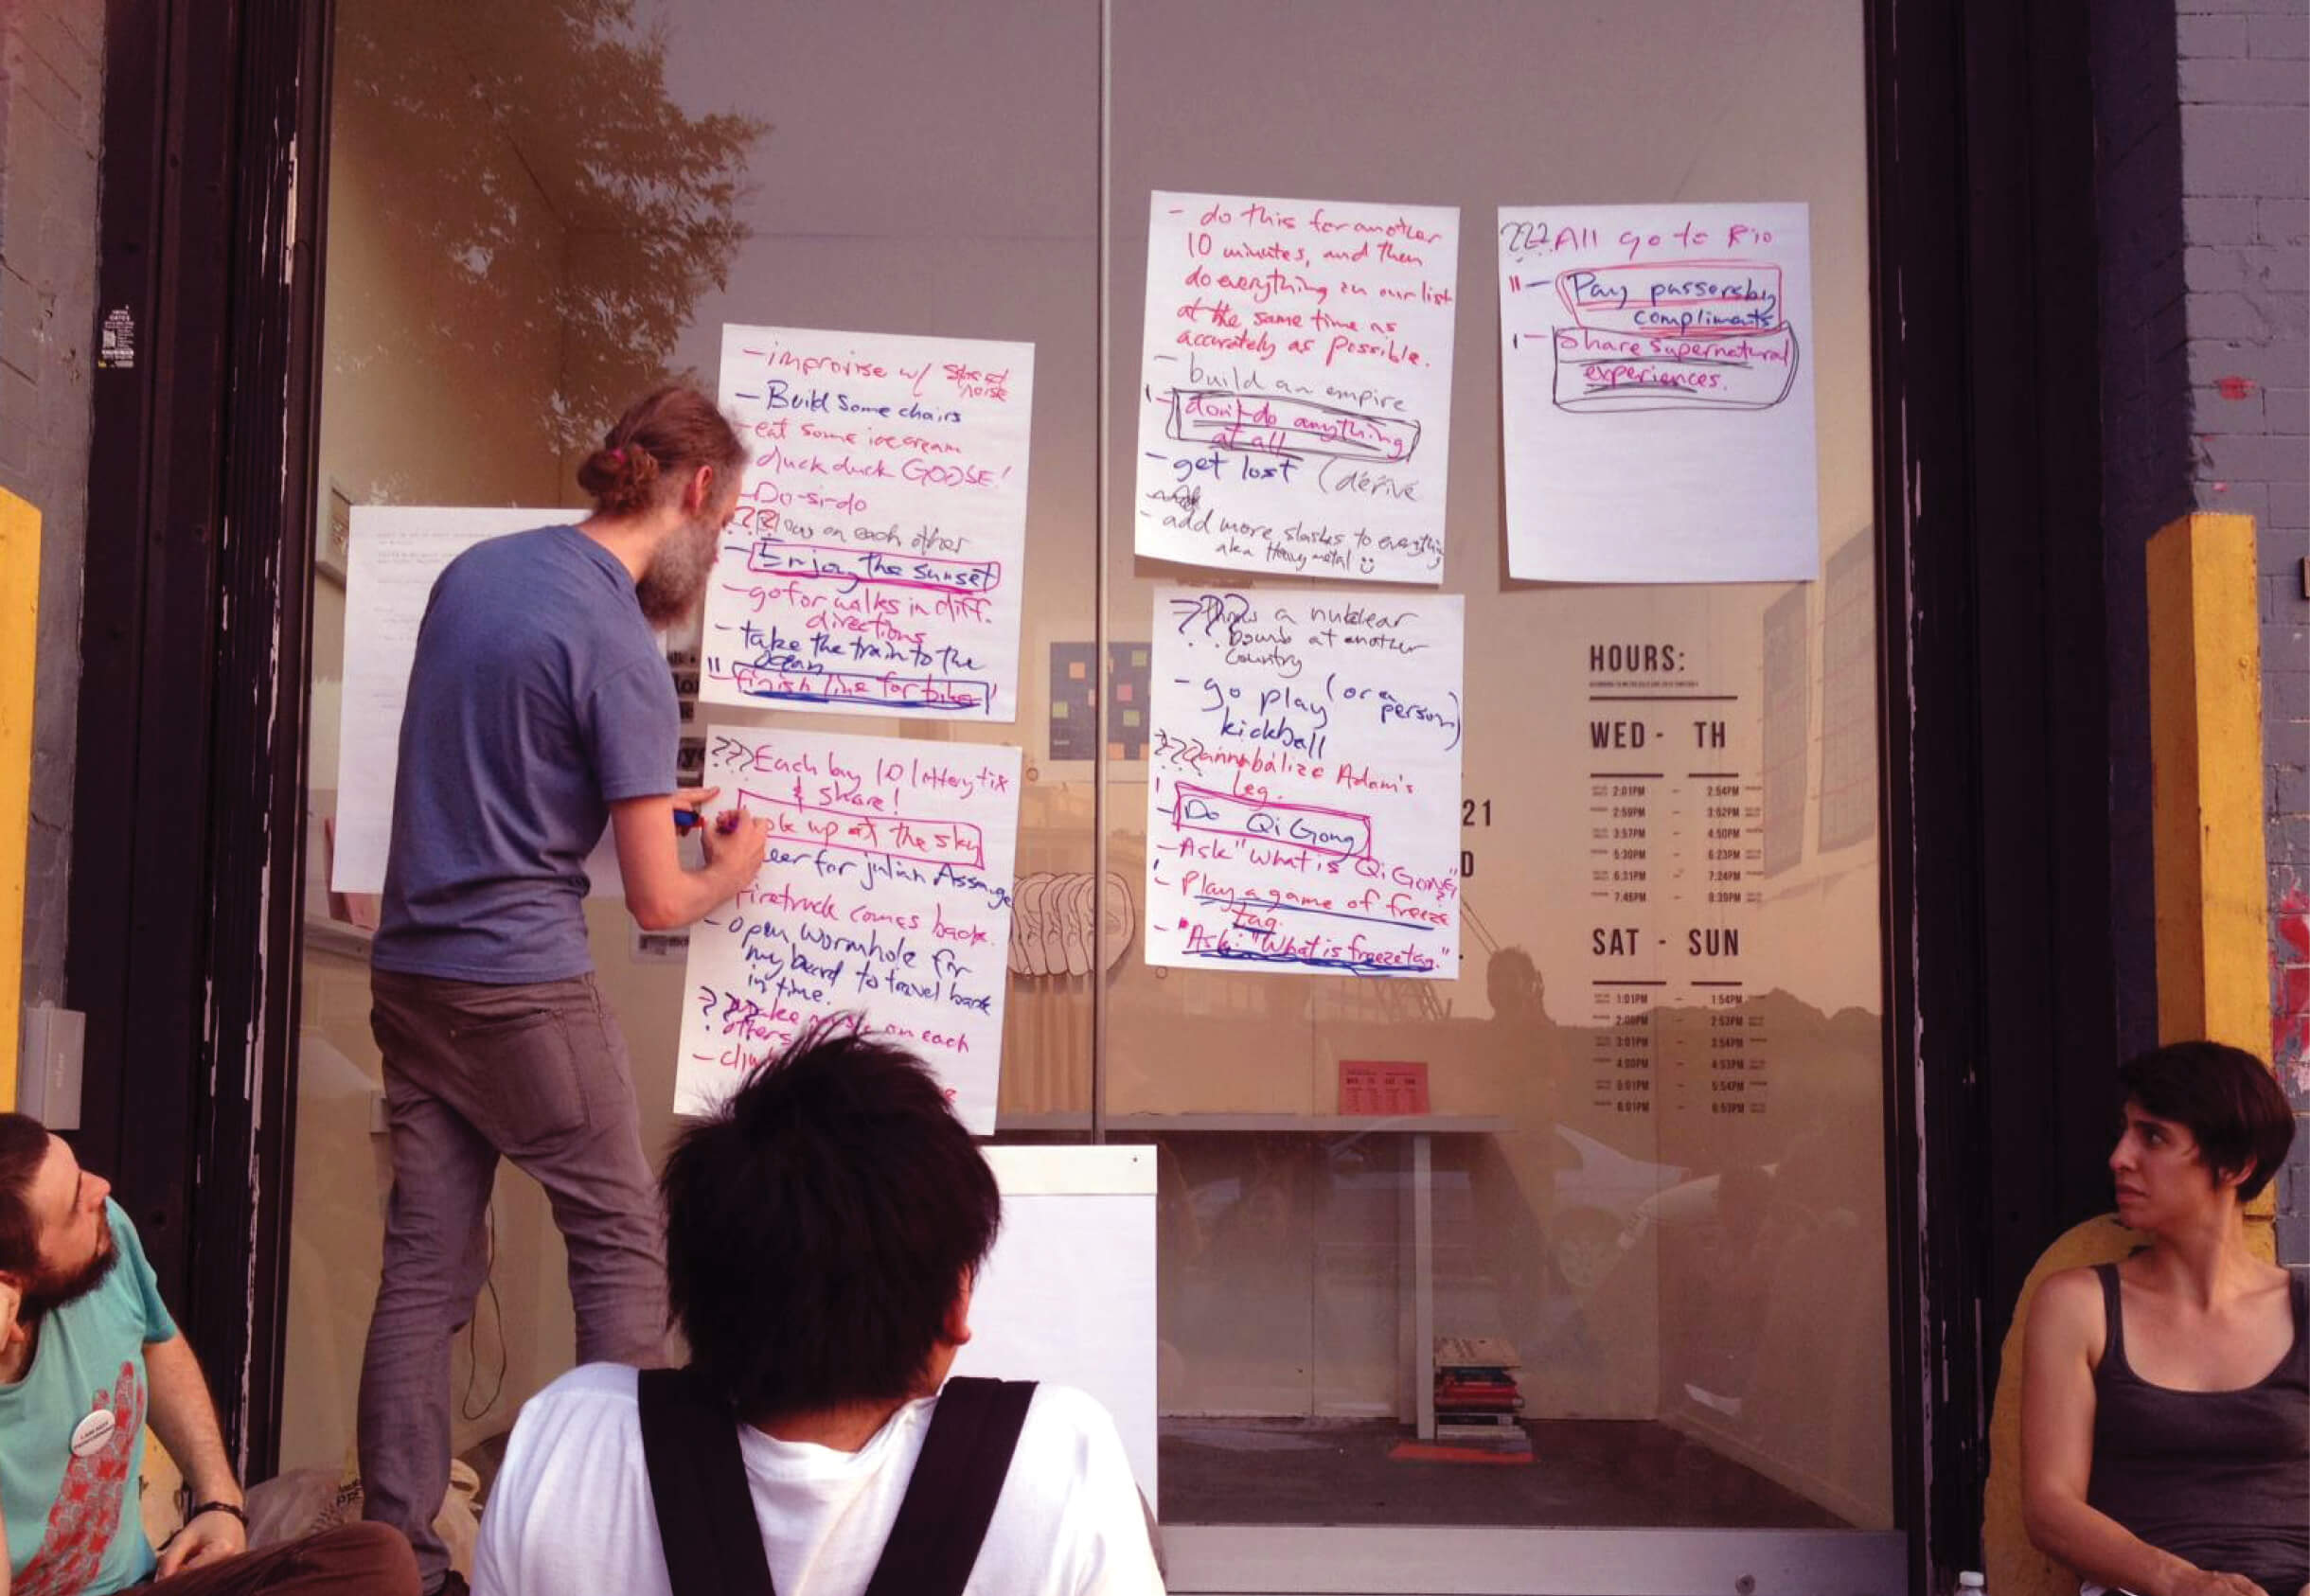 - improvise w/
noise
- Build some chairs
- eat some ice cream
- duck duck GOOSE!
- Do-si-do
on each other
- Enjoy the sunset
- go for walks in diff.
directions
- take the train to the
ocean
11 - finish line for bikes!
??? Each buy 10 lottery tix
& share!
up at the sky
for julian Assange
Firetruck comes back.
- open wormhole for
my beard to travel back
in time.
??? Make music on each
others
- clim
- do this for another
10 minutes, and then
do everything on our list
at the same time as
accurately as possible.
- build an empire
1 - don't do anything
at all
- get lost (dérive
- add more slashes to everything
aka Heavy metal
??? Throw a nuklear
bomb at another
country
- go play (or a
person)
kickball
??? Cannabalize Adam's
leg.
- Do Qi Gong
- Ask "What is Qi Gong"?
- Play a game of freeze
tag.
- "Ask: "What is freezetag."
??? All go to Rio
11 - Pay passersby
compliments
1 - Share supernatural
experiences.
21
D
HOURS:
WED - TH
2:01PM - 2:54PM
2:59PM - 3:52PM
3:57PM - 4:50PM
5:30PM - 6:23PM
6:31PM - 7:24PM
7:46PM - 8:39PM
SAT - SUN
1:01PM - 1:54PM
2:00PM - 2:53PM
3:01PM - 3:54PM
4:00PM - 4:53PM
5:01PM - 5:54PM
6:01PM - 6:53PM